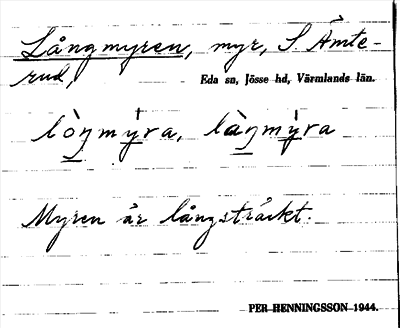 Långmyren, myr, S. Ämte-
rud,
Eda sn, Jösse hd, Värmlands län.
lòŋmýra, làŋmýra
Myren är långsträckt.
PER HENNINGSSON 1944.